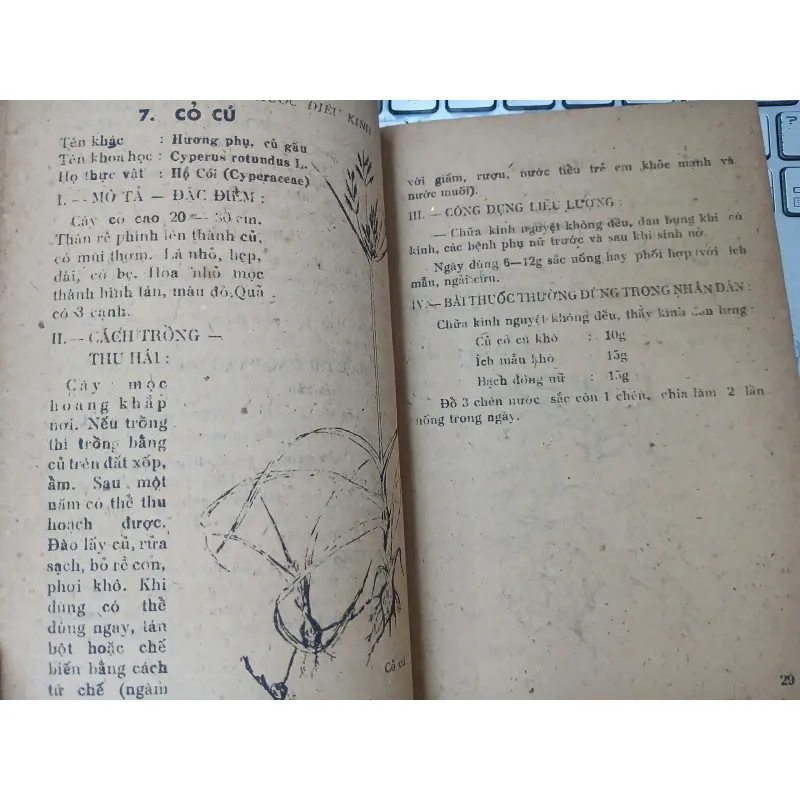 THUỐC ĐIỀU KINH
7. CỎ CÚ
Tên khác : Hương phụ, củ gấu
Tên khoa học : Cyperus rotundus L.
Họ thực vật : Họ Cói (Cyperaceae)
I. — MÔ TẢ — ĐẶC ĐIỂM :
Cây cỏ cao 20 — 30 cm.
Thân rễ phình lên thành củ,
có mùi thơm. Lá nhỏ, hẹp,
dài, có bẹ. Hoa nhỏ mọc
thành hình tán, màu đỏ. Quả
có 3 cạnh.
II. — CÁCH TRỒNG —
THU HÁI :
Cây mộc
hoang khắp
nơi. Nếu trồng
thì trồng bằng
củ trên đất xốp,
ẩm. Sau một
năm có thể thu
hoạch được.
Đào lấy củ, rửa
sạch, bỏ rễ con,
phơi khô. Khi
dùng có thể
dùng ngay, tán
bột hoặc chế
biến bằng cách
tứ chế (ngâm
Cỏ cú
với giấm, rượu, nước tiểu trẻ em khỏe mạnh và
nước muối).
III. — CÔNG DỤNG LIỀU LƯỢNG :
— Chữa kinh nguyệt không đều, đau bụng khi có
kinh, các bệnh phụ nữ trước và sau khi sinh nở.
Ngày dùng 6—12g sắc uống hay phối hợp với ích
mẫu, ngải cứu.
IV. — BÀI THUỐC THƯỜNG DÙNG TRONG NHÂN DÂN :
Chữa kinh nguyệt không đều, thấy kinh đau lưng :
Củ cỏ cú khô : 10g
Ích mẫu khô : 15g
Bạch đồng nữ : 15g
Đổ 3 chén nước sắc còn 1 chén, chia làm 2 lần
uống trong ngày.
29